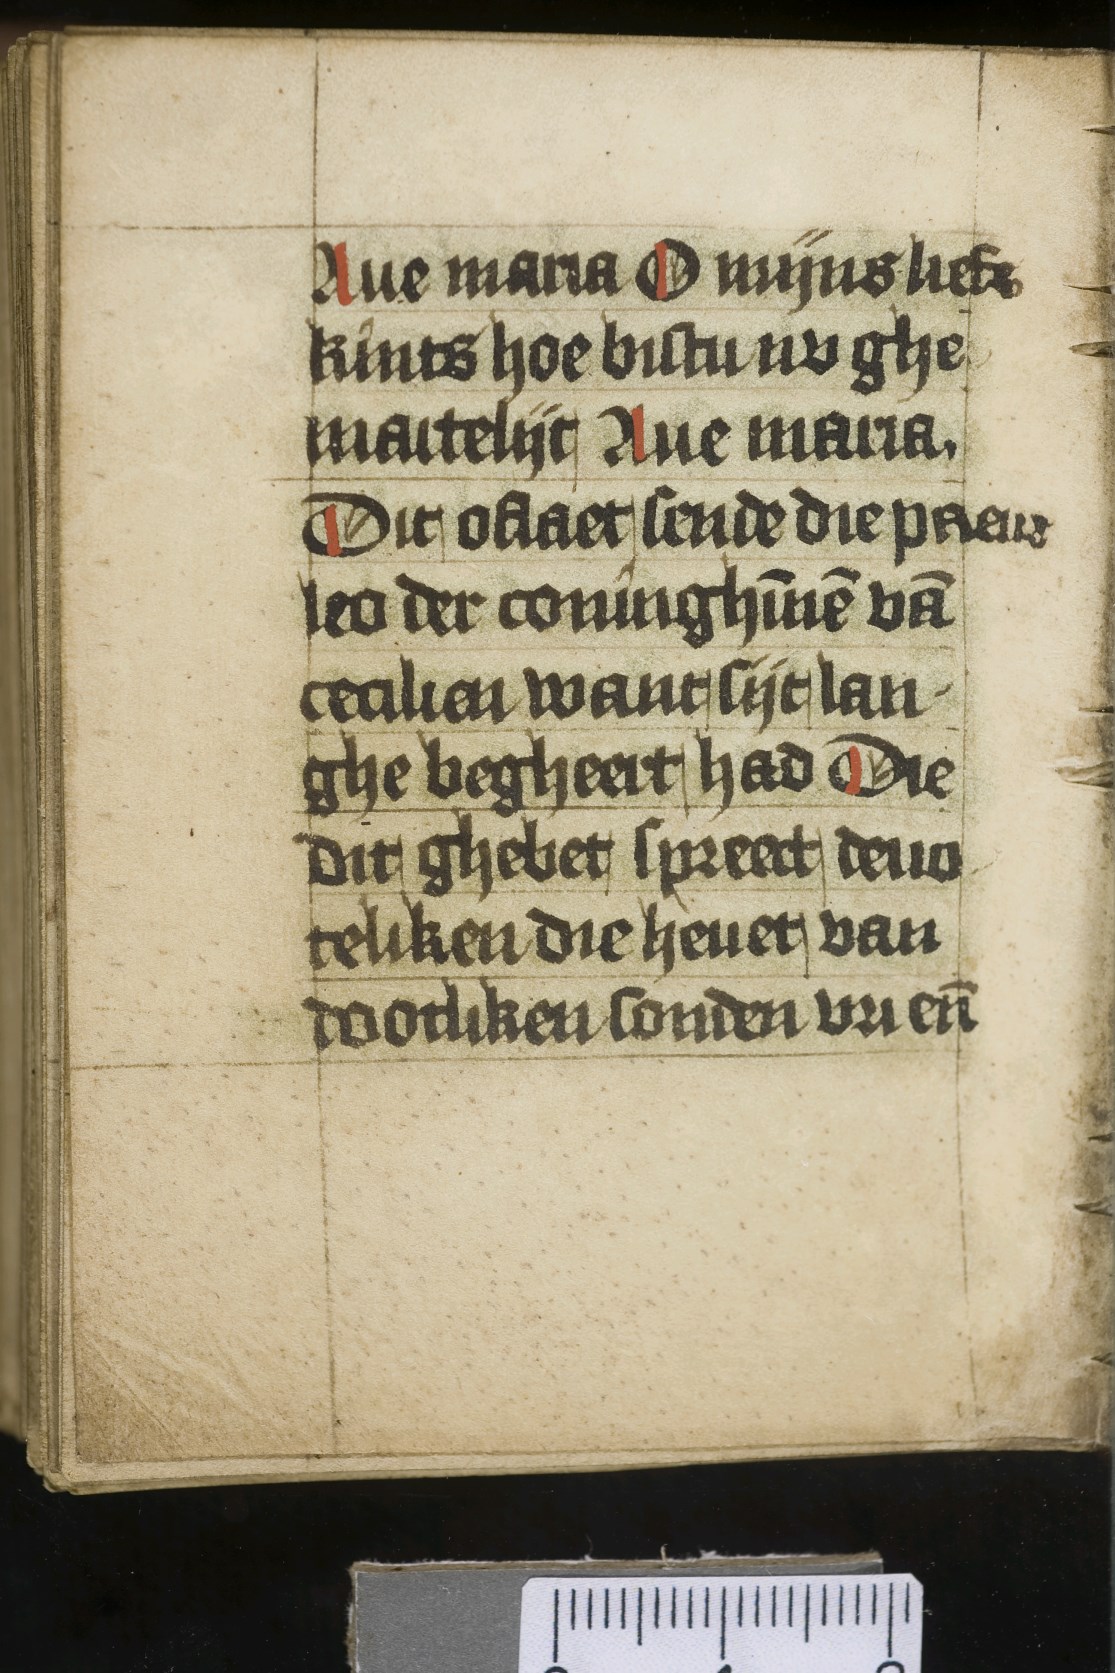 Aue maria O mijns liefs
kints hoe bistu nv ghe
martelijt Aue maria.
Dit oflaet sende die paeus
leo der coninghīnē vā
cecilien want sijt lan-
ghe begheert had Die
dit ghebet spreect deuo
teliken die heuet van
dootliken sonden vri en̄